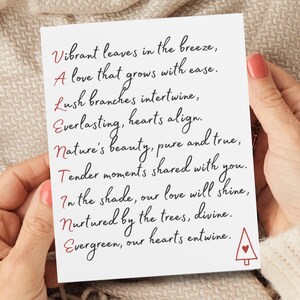 Vibrant leaves in the breeze,
A love that grows with ease.
Lush branches intertwine,
Everlasting, hearts align.
Nature's beauty, pure and true,
Tender moments shared with you.
In the shade, our love will shine,
Nurtured by the trees, divine.
Evergreen, our hearts entwine.